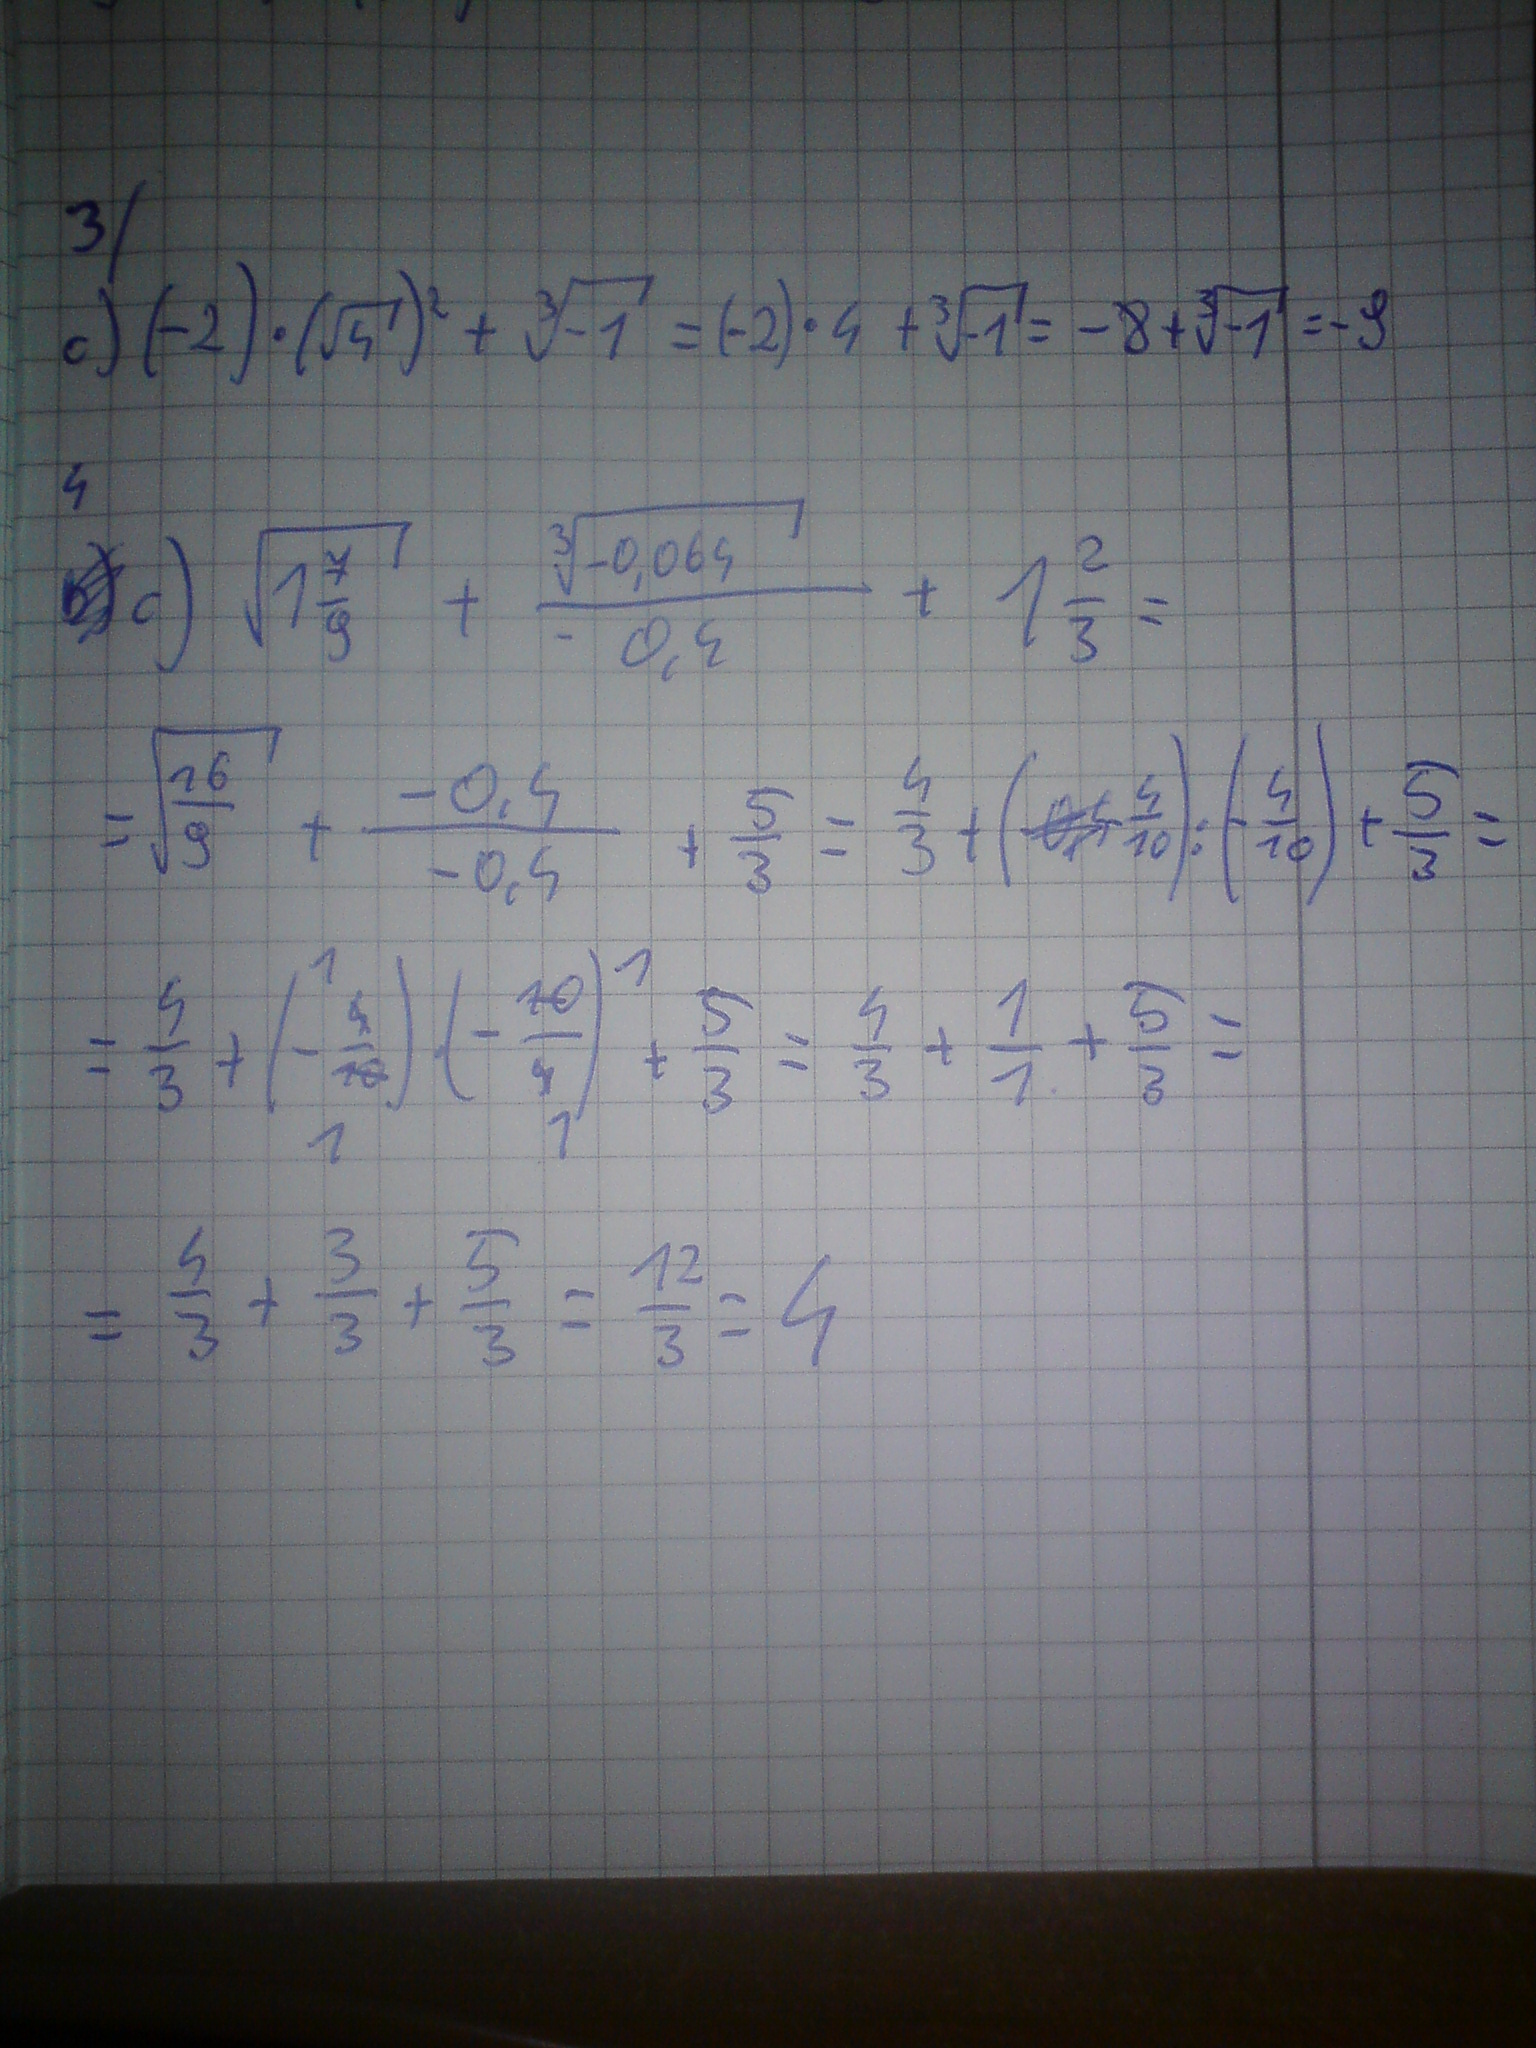 3/
c) (-2)·(√4)² + ∛-1 = (-2)·4 + ∛-1 = -8 + ∛-1 = -9
4
c) √1 7/9 + ∛-0,064 / -0,4 + 1 2/3 =
= √16/9 + -0,4 / -0,4 + 5/3 = 4/3 + (- 4/10) : (- 4/10) + 5/3 =
= 4/3 + (- 4/10) · (- 10/4) + 5/3 = 4/3 + 1/1 + 5/3 =
= 4/3 + 3/3 + 5/3 = 12/3 = 4